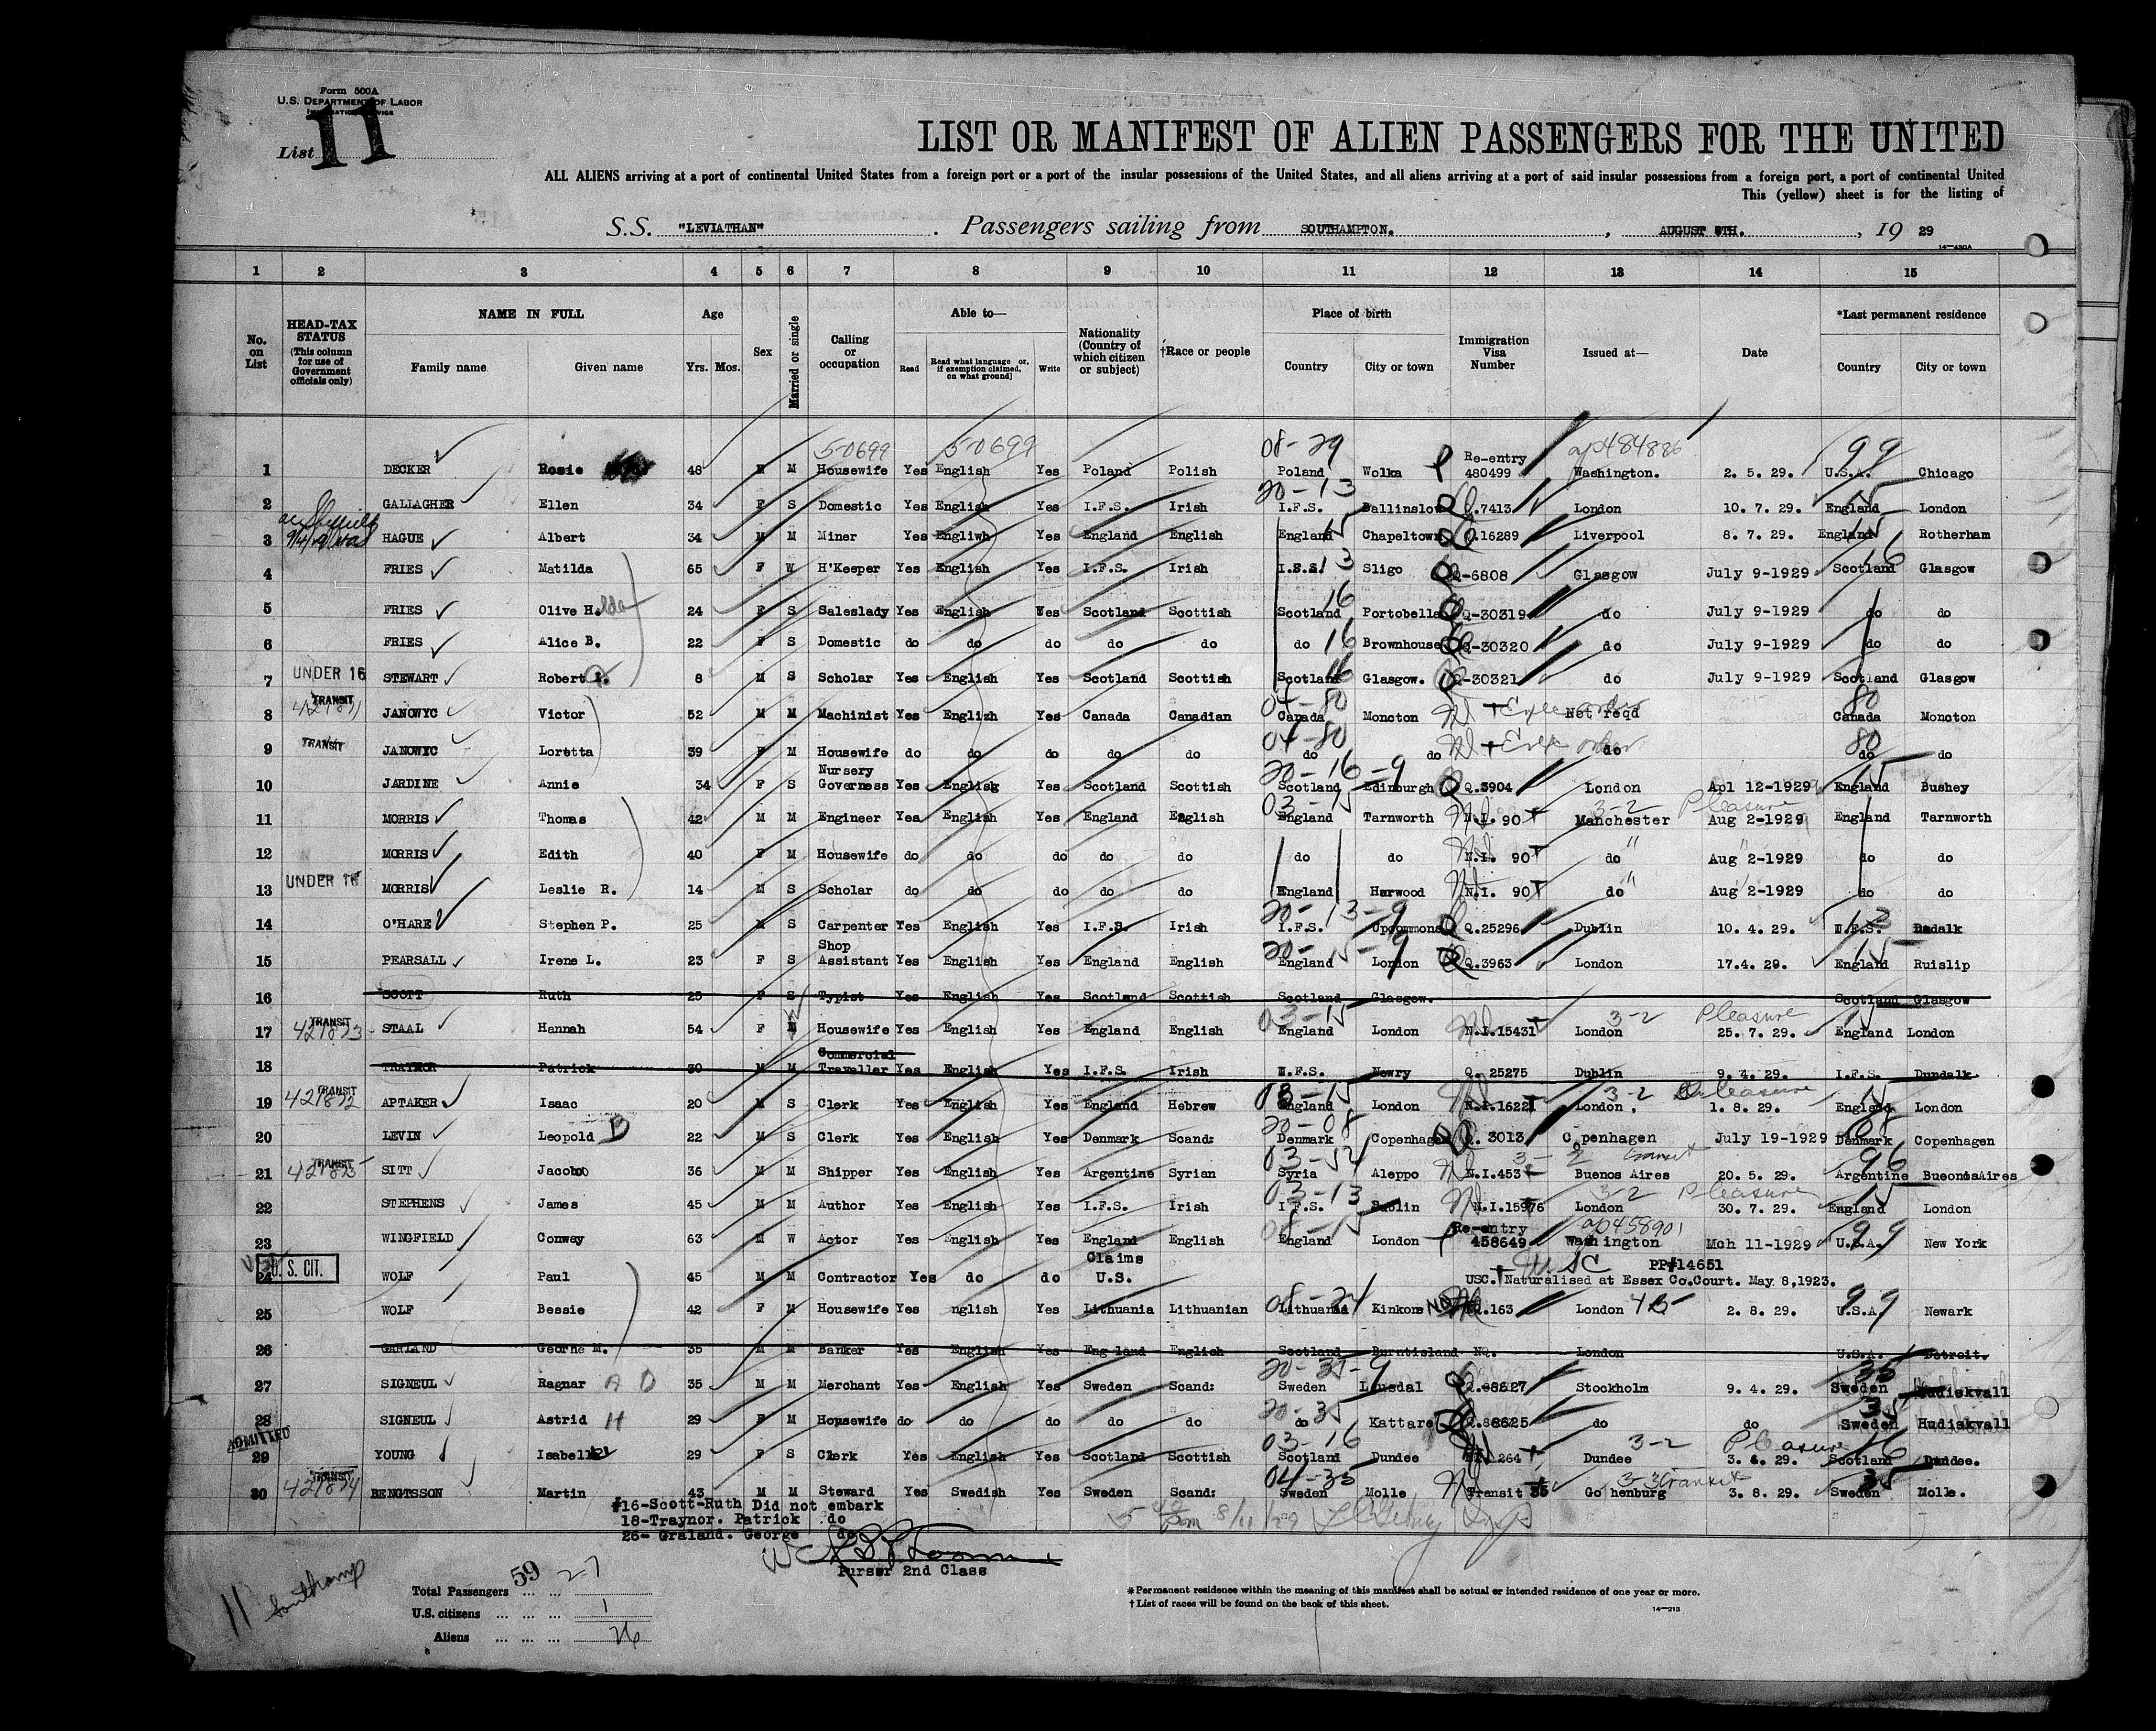 Form 500A
U.S. DEPARTMENT OF LABOR
IMMIGRATION SERVICE
List 11
LIST OR MANIFEST OF ALIEN PASSENGERS FOR THE UNITED
ALL ALIENS arriving at a port of continental United States from a foreign port or a port of the insular possessions of the United States, and all aliens arriving at a port of said insular possessions from a foreign port, a port of continental United
This (yellow) sheet is for the listing of
S.S. "LEVIATHAN" . Passengers sailing from SOUTHAMPTON. , AUGUST 6TH. , 19 29
14—430A
1 2 3 4 5 6 7 8 9 10 11 12 13 14 15
No. on List
HEAD-TAX STATUS (This column for use of Government officials only)
NAME IN FULL
Family name Given name
Age
Yrs. Mos.
Sex
Married or single
Calling or occupation
Able to—
Read Read what language [or, if exemption claimed, on what ground] Write
Nationality (Country of which citizen or subject)
†Race or people
Place of birth
Country City or town
Immigration Visa Number
Issued at—
Date
*Last permanent residence
Country City or town
50699 50699 08-29 ap484886 99
1 DECKER Rosie 48 M Housewife Yes English Yes Poland Polish Poland Wolka Re-entry 480499 Washington. 2. 5. 29. U.S.A. Chicago
20-13 15
2 GALLAGHER Ellen 34 F S Domestic Yes English Yes I.F.S. Irish I.F.S. Ballinslow Q.7413 London 10. 7. 29. England London
3 HAGUE Albert 34 M M Miner Yes Engliwh Yes England English England 15 Chapeltown Q.16289 Liverpool 8. 7. 29. England 15 Rotherham
4 FRIES Matilda 65 F W H'Keeper Yes English Yes I.F.S. Irish I.F.S. 13 Sligo Q-6808 Glasgow July 9-1929 Scotland 16 Glasgow
5 FRIES Olive H.lda 24 F S Saleslady Yes English Yes Scotland Scottish Scotland 16 Portobella Q-30319 do July 9-1929 do do
6 FRIES Alice B. 22 F S Domestic do do do do do do 16 Brownhouse Q-30320 do July 9-1929 do do
UNDER 16
7 STEWART Robert 8 M S Scholar Yes English Yes Scotland Scottish Scotland 16 Glasgow. Q-30321 do July 9-1929 Scotland Glasgow
TRANSIT 421871 04-80 80
8 JANOWYC Victor 52 M M Machinist Yes Englizh Yes Canada Canadian Canada Moncton Not reqd Canada Moncton
TRANSIT 04-80 80
9 JANOWYC Loretta 39 F M Housewife do do do do do do do do do do
20-16-9 15
10 JARDINE Annie 34 F S Nursery Governess Yes Englisg Yes Scotland Scottish Scotland Edinburgh Q.3904 London Apl 12-1929 England Bushey
03-15 3-2 Pleasure
11 MORRIS Thomas 42 M M Engineer Yes English Yes England English England Tarnworth N.I. 90 Manchester Aug 2-1929 England Tarnworth
12 MORRIS Edith 40 F M Housewife do do do do do do do N.I. 90 do " Aug 2-1929 do do
UNDER 16
13 MORRIS Leslie R. 14 M S Scholar do do do do do England Harwood N.I. 90 do " Aug 2-1929 do do
20-13-9 13
14 O'HARE Stephen P. 25 M S Carpenter Yes English Yes I.F.S. Irish I.F.S. Upcommons Q.25296 Dublin 10. 4. 29. I.F.S. Dndalk
20-15-9 15
15 PEARSALL Irene L. 23 F S Shop Assistant Yes English Yes England English England London Q.3963 London 17.4. 29. England Ruislip
16 SCOTT Ruth 25 F S Typist Yes English Yes Scotland Scottish Scotland Glasgow. Scotland Glasgow
TRANSIT 421873 03-15 3-2 Pleasure 15
17 STAAL Hannah 54 F Housewife Yes English Yes England English England London N.I.15431 London 25. 7. 29. England London
18 TRAYNOR Patrick 30 M M Commercial Traveller Yes English Yes I.F.S. Irish I.F.S. Newry Q. 25275 Dublin 9. 4. 29. I.F.S. Dundalk.
TRANSIT 421872 03-15 3-2 Pleasure 15
19 APTAKER Isaac 20 M S Clerk Yes English Yes England Hebrew England London N.I.16221 London. 1. 8. 29. England London
20-08 08
20 LEVIN Leopold B 22 M S Clerk Yes English Yes Denmark Scand: Denmark Copenhagen Q. 3013 Copenhagen July 19-1929 Denmark Copenhagen
TRANSIT 421875 03-54 3-2 transit 96
21 SITT Jacobo 36 M M Shipper Yes English Yes Argentine Syrian Syria Aleppo N.I.453 Buenos Aires 20. 5. 29. Argentine BuenosAires
03-13 3-2 Pleasure 15
22 STEPHENS James 45 M M Author Yes English Yes I.F.S. Irish I F.S. Dublin N.I.15976 London 30. 7. 29. England London
08-15 ap458901 99
23 WINGFIELD Conway 63 M W Actor Yes English Yes England English England London Re-entry 458649 Washington Mch 11-1929 U.S.A. New York
U. S. CIT. USC PP#14651
24 WOLF Paul 45 M M Contractor Yes do do Claims U.S. USC. Naturalised at Essex Co.Court. May 8,1923.
08-24 99
25 WOLF Bessie 42 F M Housewife Yes nglish Yes Lithuania Lithuanian Lithuania Kinkone NQ.163 London 2. 8. 29. U.S.A. Newark
26 GARLAND Georhe M. 35 M M Banker Yes English Yes England English Scotland Burntisland NQ. London U.S.A. Detroit.
20-35-9 35
27 SIGNEUL Ragnar A D 35 M M Merchant Yes English Yes Sweden Scand: Sweden Ljusdal Q.08627 Stockholm 9. 4. 29. Sweden Hudiskvall
20-35 35
28 SIGNEUL Astrid H 29 F M Housewife do do do do do do Kattare Q.88625 do do Sweden Hudiskvall
ADMITTED 03-16 3-2 Pleasure 16
29 YOUNG Isabell 29 F S Clerk Yes English Yes Scotland Scottish Scotland Dundee NI 264 Dundee 3. 6. 29. Scotland Dundee.
TRANSIT 421874 04-35 3-3 transit 35
30 BENGTSSON Martin 43 M M Steward Yes Swedish Yes Sweden Scand: Sweden Molle Transit 35 Go henburg 3. 8. 29. Sweden Molle.
#16-Scott-Ruth Did not embark
18-Traynor. Patrick do
26- Graland. George do
8/11/29
Purser 2nd Class
11 Southamp
Total Passengers ... ... 59 27
U.S. citizens ... ... ... 1
Aliens ... ... ... 26
*Permanent residence within the meaning of this manifest shall be actual or intended residence of one year or more.
†List of races will be found on the back of this sheet.
14—213